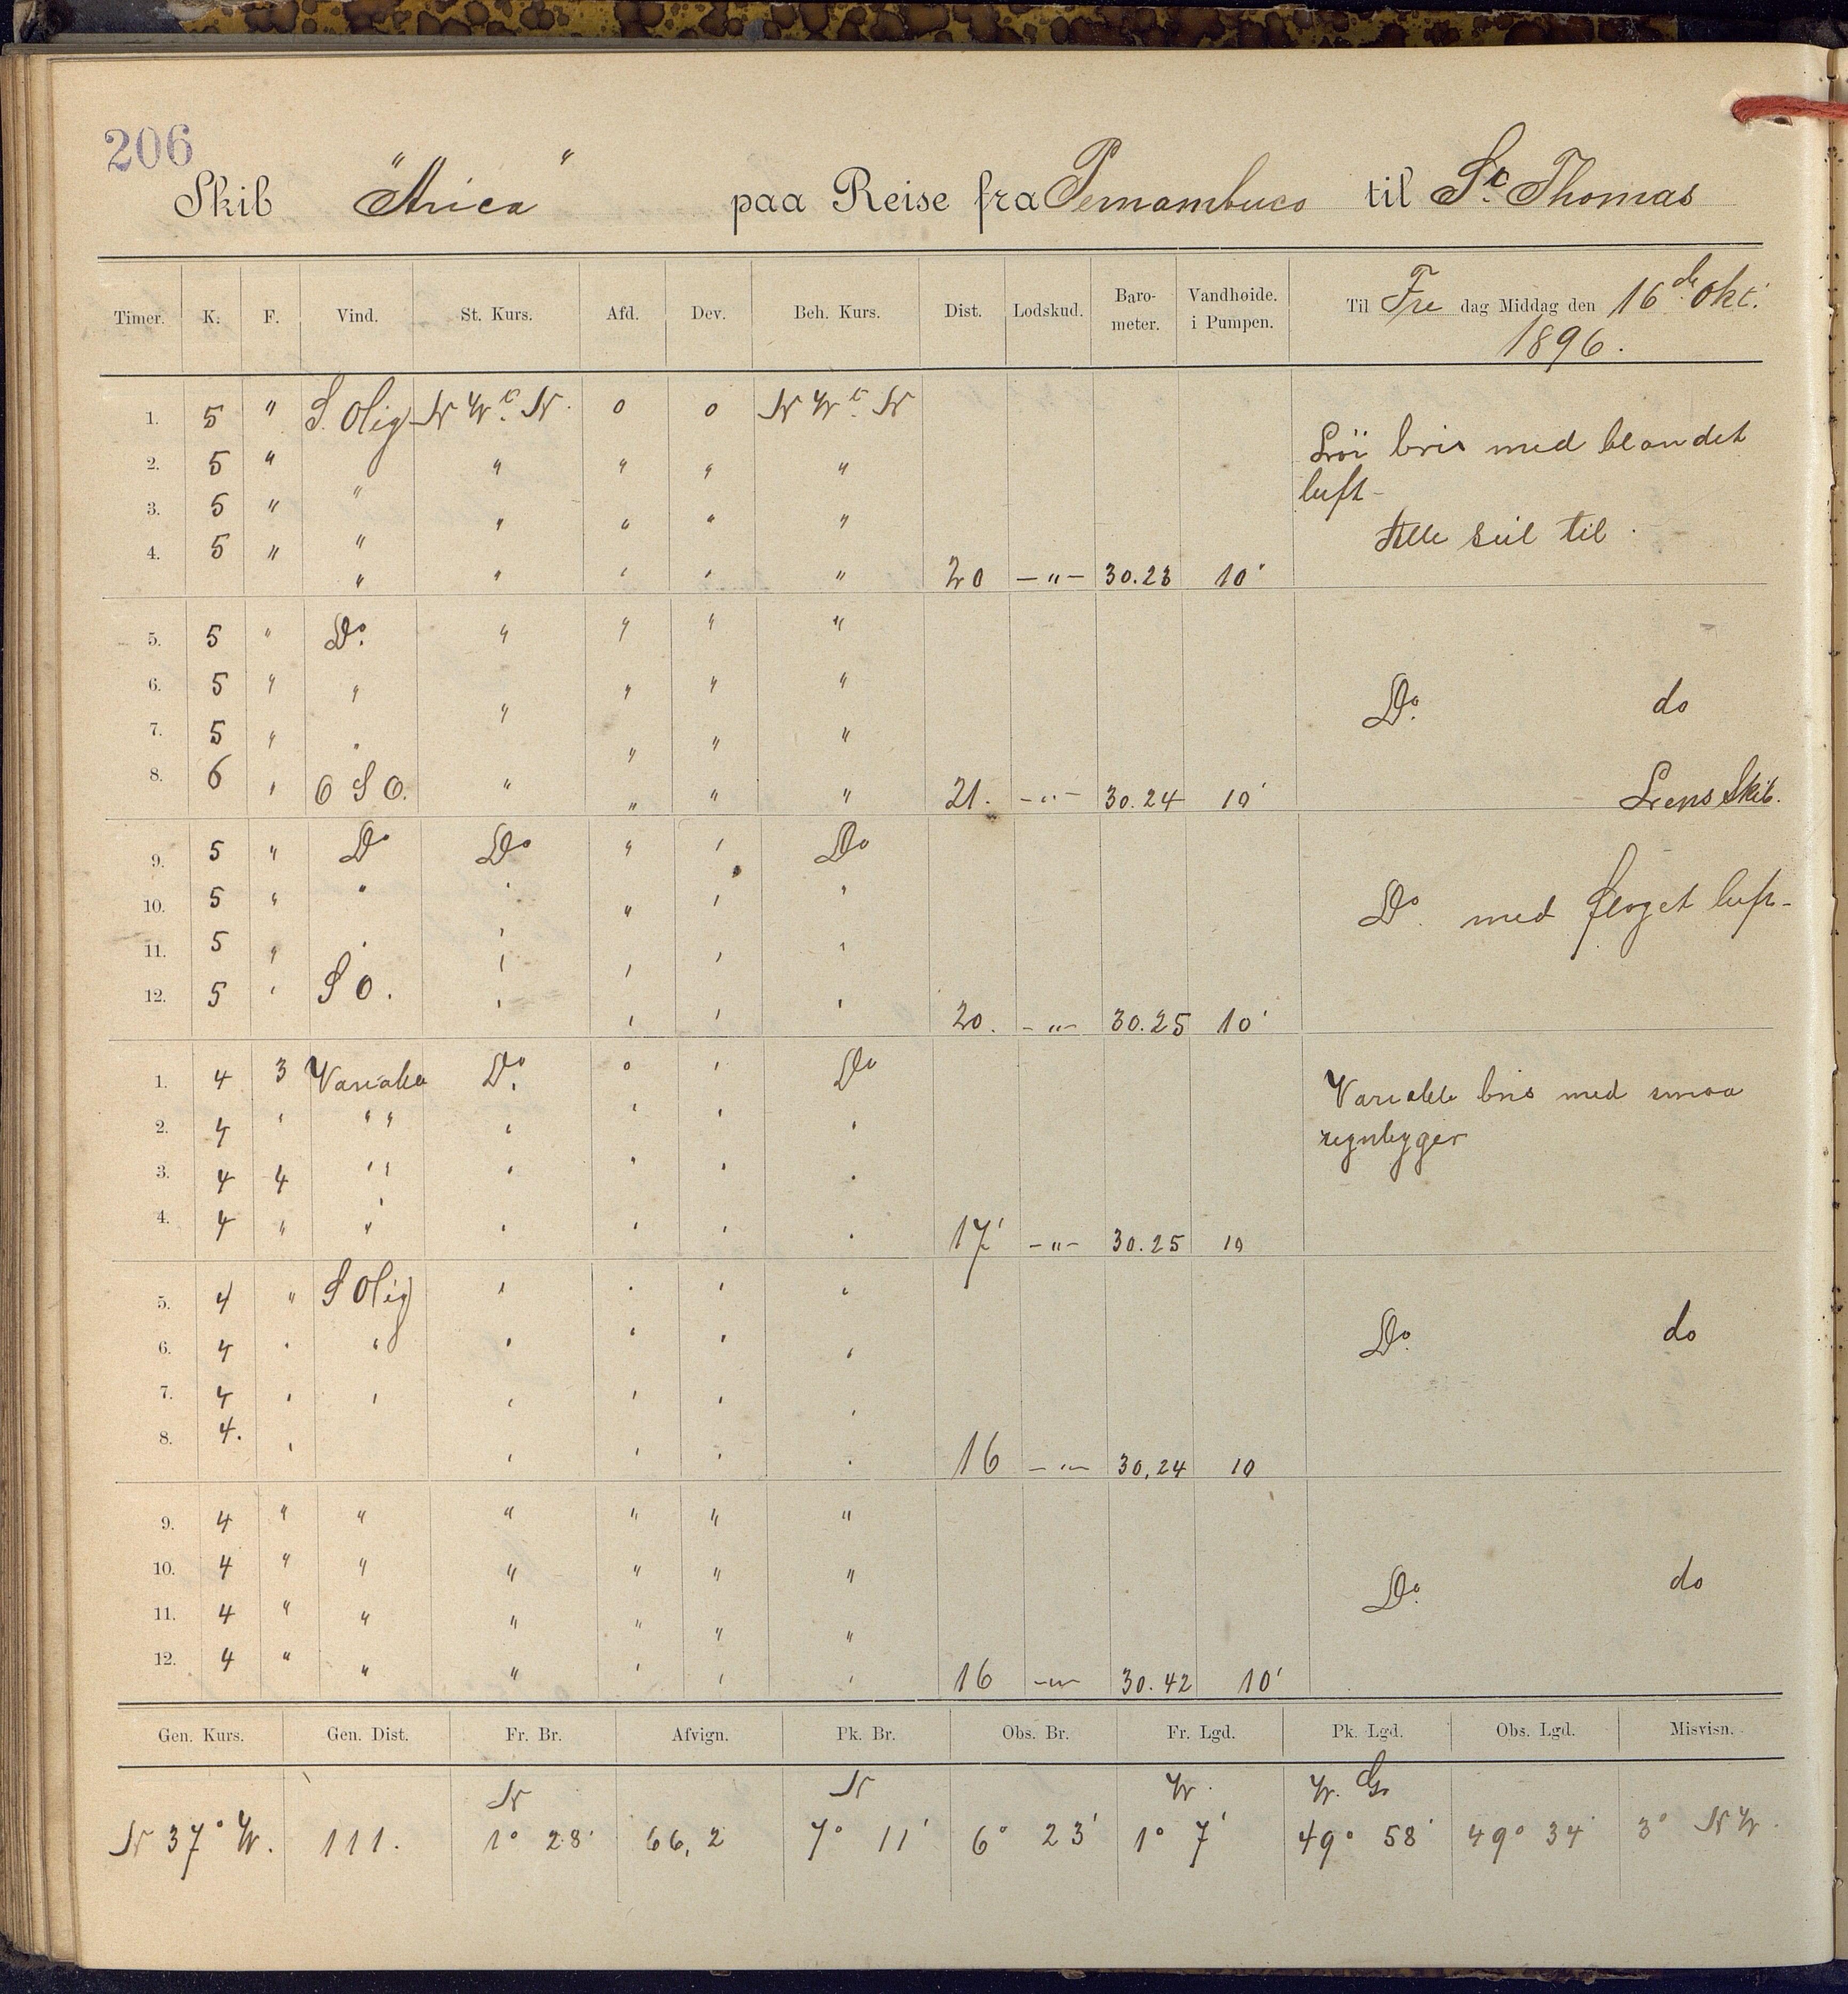 206
Skib "Arica" paa Reise fra Pernambuco til St. Thomas
Timer. K. F. Vind. St. Kurs. Afd. Dev. Beh. Kurs. Dist. Lodskud. Baro-meter. Vandhøide. i Pumpen. Til Fre dag Middag den 16de Okt. 1896.
1. 5 " S. Olig N W t. N. 0 0 N W t. N
Frői bris med blandet
2. 5 " " " " " "
luft -
3. 5 " " " " " "
Alle seil til.
4. 5 " " " " " " 20 -"- 30.23 10'
5. 5 " Do. " " " "
6. 5 " " " " " "
Do. do
7. 5 " " " " " "
8. 6 " O S O. " " " " 21. -"- 30.24 10' Lens Skib.
9. 5 " Do Do " " Do
10. 5 " " " " " "
Do. med skyet luft-
11. 5 " " " " " "
12. 5 " S O. " " " " 20. -"- 30.25 10'
1. 4 3 Variable Do. 0 " Do
Variable bris med smaa
2. 4 " " " " " " "
regnbyger
3. 4 4 " " " " " "
4. 4 " " " " " " 17' -"- 30.25 10
5. 4 " S Olig " " " "
6. 4 " " " " " "
Do. do
7. 4 " " " " " "
8. 4. " " " " " 16 -"- 30,24 10
9. 4 " " " " " "
10. 4 " " " " " "
Do. do
11. 4 " " " " " "
12. 4 " " " " " " 16 -"- 30.42 10'
Gen. Kurs. Gen. Dist. Fr. Br. Afvign. Pk. Br. Obs. Br. Fr. Lgd. Pk. Lgd. Obs. Lgd. Misvisn.
N N W. W. G.
N 37° W. 111. 1° 28' 66,2 7° 11' 6° 23' 1° 7' 49° 58' 49° 34' 3° N W.